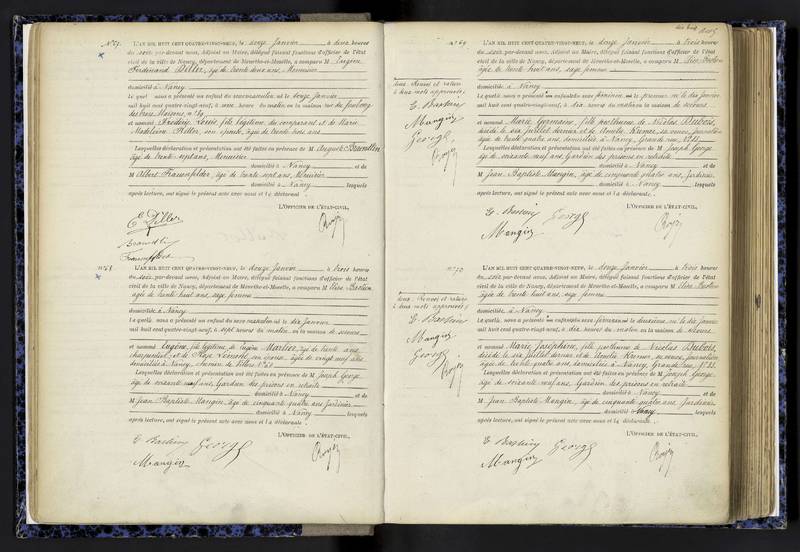 N° 67
L'AN MIL HUIT CENT QUATRE-VINGT-NEUF, le douze Janvier à deux heures
du soir par-devant nous, Adjoint au Maire, délégué faisant fonctions d'officier de l'état
civil de la ville de Nancy, département de Meurthe-et-Moselle, a comparu M Eugène
Ferdinand Diller, âgé de trente deux ans, Menuisier
domicilié à Nancy
Lequel nous a présenté un enfant du sexe masculin né le douze Janvier
mil huit cent quatre-vingt-neuf, à onze heures du matin en la maison rue du faubourg
des trois Maisons, n°
et nommé Frédéric Louis, fils légitime du comparant et de Marie
Madeleine, son épouse, âgée de trente trois ans
Lesquelles déclaration et présentation ont été faites en présence de M Auguste
âgé de trente sept ans, Menuisier
domicilié à Nancy et de
M Albert Frauenfelder, âgé de trente sept ans, Menuisier
domicilié à Nancy lesquels
après lecture, ont signé le présent acte avec nous et l déclarant
L'OFFICIER DE L'ÉTAT-CIVIL,
E Diller
N° 68
L'AN MIL HUIT CENT QUATRE-VINGT-NEUF, le douze Janvier à trois heures
du soir par-devant nous, Adjoint au Maire, délégué faisant fonctions d'officier de l'état
civil de la ville de Nancy, département de Meurthe-et-Moselle, a comparu M Elise Bastien
âgée de trente huit ans, sage femme
domiciliée à Nancy
Laquelle nous a présenté un enfant du sexe masculin né le dix Janvier
mil huit cent quatre-vingt-neuf, à sept heures du matin en la maison de
et nommé Eugène, fils légitime de Eugène, âgé de trente ans
charpentier, et de, son épouse, âgée de vingt neuf ans
domiciliés à Nancy
Lesquelles déclaration et présentation ont été faites en présence de M Joseph George
âgé de soixante neuf ans, Gardien des prisons en retraite
domicilié à Nancy et de
M Jean Baptiste Mangin, âgé de cinquante quatre ans Jardinier
domicilié à Nancy lesquels
après lecture, ont signé le présent acte avec nous et la déclarante
L'OFFICIER DE L'ÉTAT-CIVIL,
E Bastien George
Mangin
N° 69
L'AN MIL HUIT CENT QUATRE-VINGT-NEUF, le douze Janvier à trois heures
du soir par-devant nous, Adjoint au Maire, délégué faisant fonctions d'officier de l'état
civil de la ville de Nancy, département de Meurthe-et-Moselle, a comparu M Elise Bastien
âgée de trente huit ans, sage femme
domiciliée à Nancy
Laquelle nous a présenté un enfant du sexe féminin né le premier Janvier
mil huit cent quatre-vingt-neuf, à dix heures du matin en la maison de secours
et nommé Marie Germaine, fille posthume de Nicolas Dubois,
décédé le dix juillet dernier et de Amélie, sa veuve, journalière
âgée de trente quatre ans, domiciliée à Nancy, Grande rue, N°
Lesquelles déclaration et présentation ont été faites en présence de M Joseph George
âgé de soixante neuf ans, Gardien des prisons en retraite
domicilié à Nancy et de
M Jean Baptiste Mangin, âgé de cinquante quatre ans, Jardinier
domicilié à Nancy lesquels
après lecture, ont signé le présent acte avec nous et la déclarante
L'OFFICIER DE L'ÉTAT-CIVIL,
E Bastien George
Mangin
deux mots approuvés
E Bastien
Mangin
George
N° 70
L'AN MIL HUIT CENT QUATRE-VINGT-NEUF, le douze Janvier à trois heures
du soir par-devant nous, Adjoint au Maire, délégué faisant fonctions d'officier de l'état
civil de la ville de Nancy, département de Meurthe-et-Moselle, a comparu M Elise Bastien
âgée de trente huit ans, sage femme
domiciliée à Nancy
Laquelle nous a présenté un enfant du sexe féminin né le deuxième Janvier
mil huit cent quatre-vingt-neuf, à dix heures du matin en la maison de secours
et nommé Marie Joséphine, fille posthume de Nicolas Dubois,
décédé le dix juillet dernier et de Amélie, sa veuve, journalière
âgée de trente quatre ans, domiciliée à Nancy, Grande rue, N°
Lesquelles déclaration et présentation ont été faites en présence de M Joseph George
âgé de soixante neuf ans, Gardien des prisons en retraite
domicilié à Nancy et de
M Jean Baptiste Mangin, âgé de cinquante quatre ans Jardinier
domicilié à Nancy lesquels
après lecture, ont signé le présent acte avec nous et la déclarante
L'OFFICIER DE L'ÉTAT-CIVIL,
E Bastien George
Mangin
deux mots approuvés
E Bastien
Mangin
George